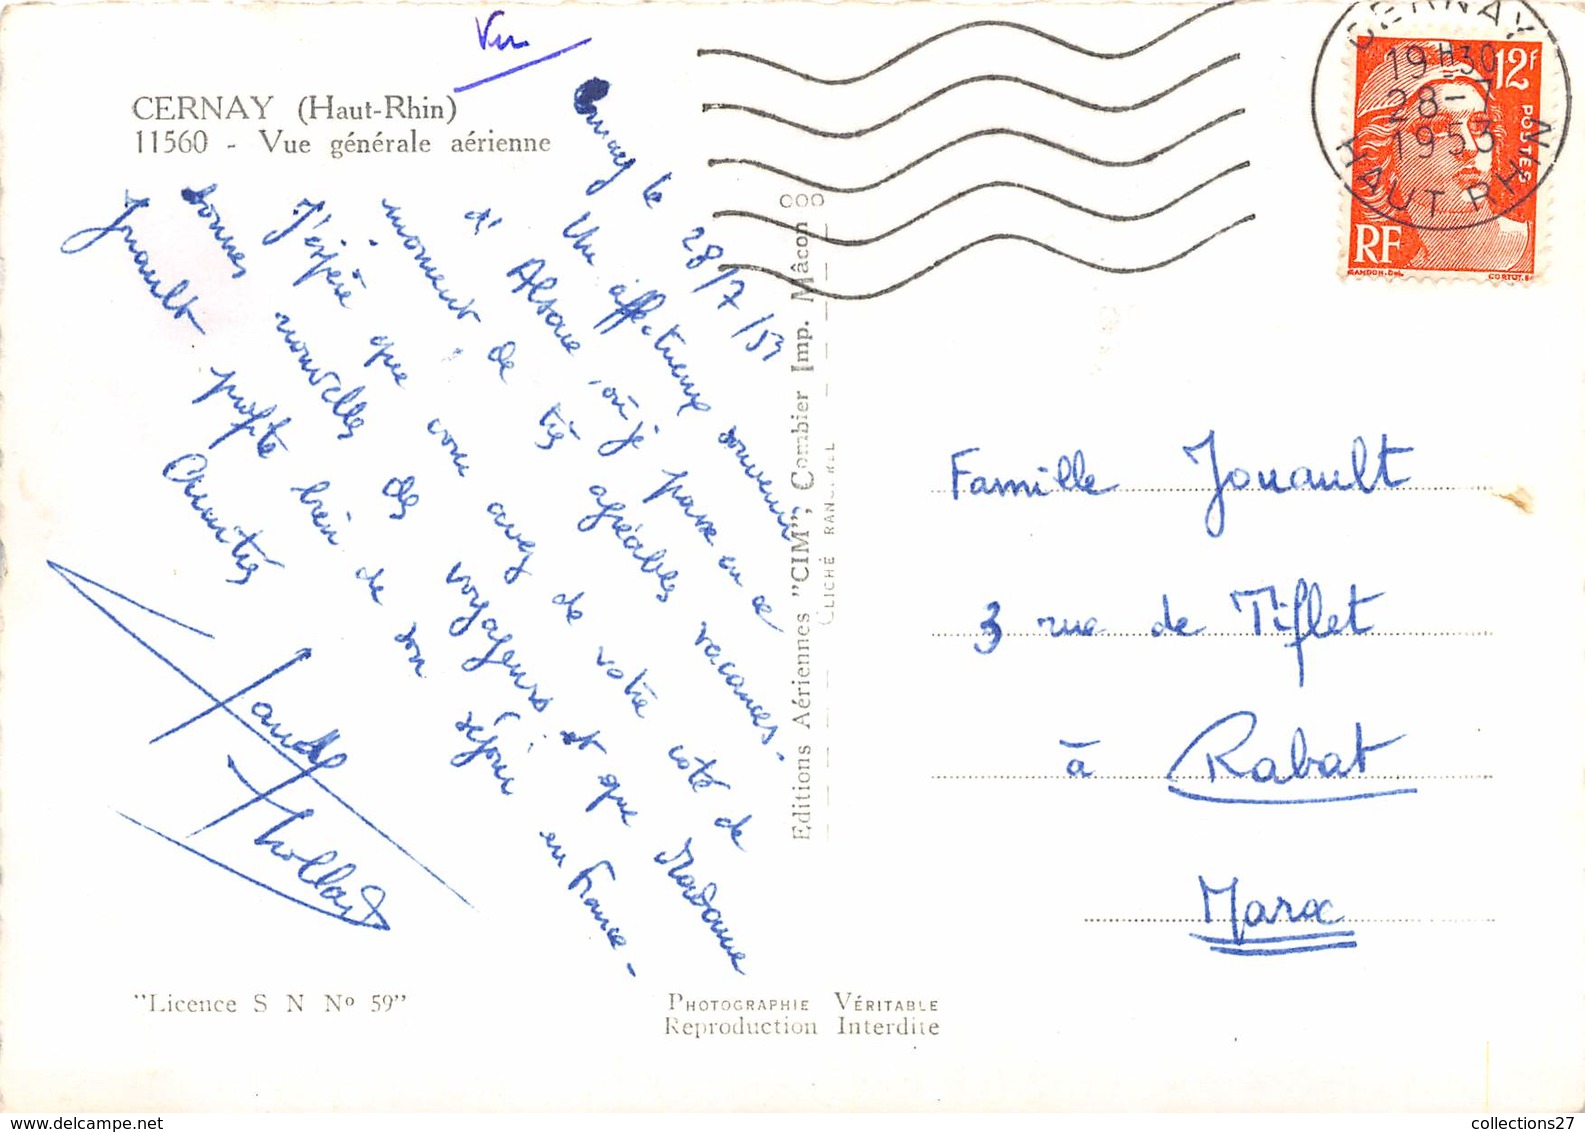 Vu
CERNAY (Haut-Rhin)
11560 - Vue générale aérienne
Cernay le 28/7/53
Un affectueux souvenir
d'Alsace, où je passe en ce
moment de très agréables vacances.
J'espère que vous avez de votre côté de
bonnes nouvelles des voyageurs et que Madame
Jouault profite bien de son séjour en France -
Amitiés
"Licence S N Nº 59"
PHOTOGRAPHIE VÉRITABLE
Reproduction Interdite
Editions Aériennes "CIM", Combier Imp. Mâcon
CLICHÉ
CERNAY
19H30
28-7
1953
HAUT RHIN
12F
POSTES
RF
GANDON.DEL
CORTOT.
Famille Jouault
3 rue de Tiflet
à Rabat
Maroc
collections27